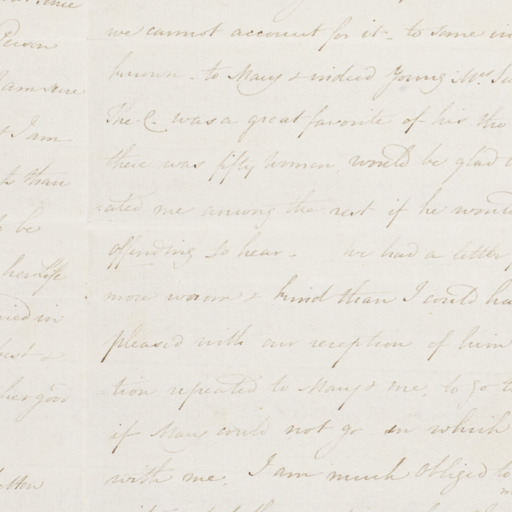 Person
I am sure
& I am
than
be
herself
in
best &
her good
we cannot account for it - to some in
known - to Mary & indeed Young Mrs. Su
The C. was a great favorite of his tho
there was fifty Women, would be glad
ated me among the rest if he would
offending to hear - We had a letter
more warm & kind than I could ha
pleased with our reception of him
tion repeated to Mary & me, to go t
if Mary could not go in which
with me. I am much Obliged to